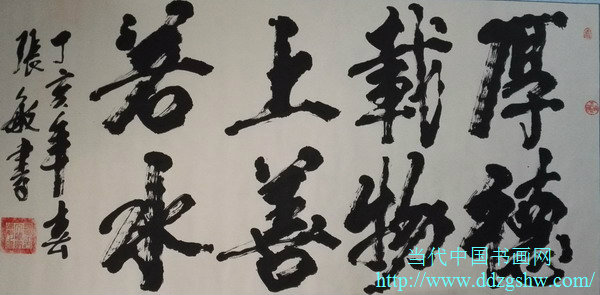 厚德
載物
上善
若水
丁亥年春
張敏書
当代中国书画网
http://www.ddzgshw.com